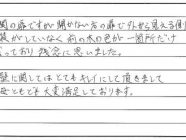 関の扉ですが開かない方の扉で外から見える側
装がしていなく前の木の色が一箇所だけ
っており残念に思いました。
壁に関してはとてもキレイにして頂きまして
母ともども大変満足しております。